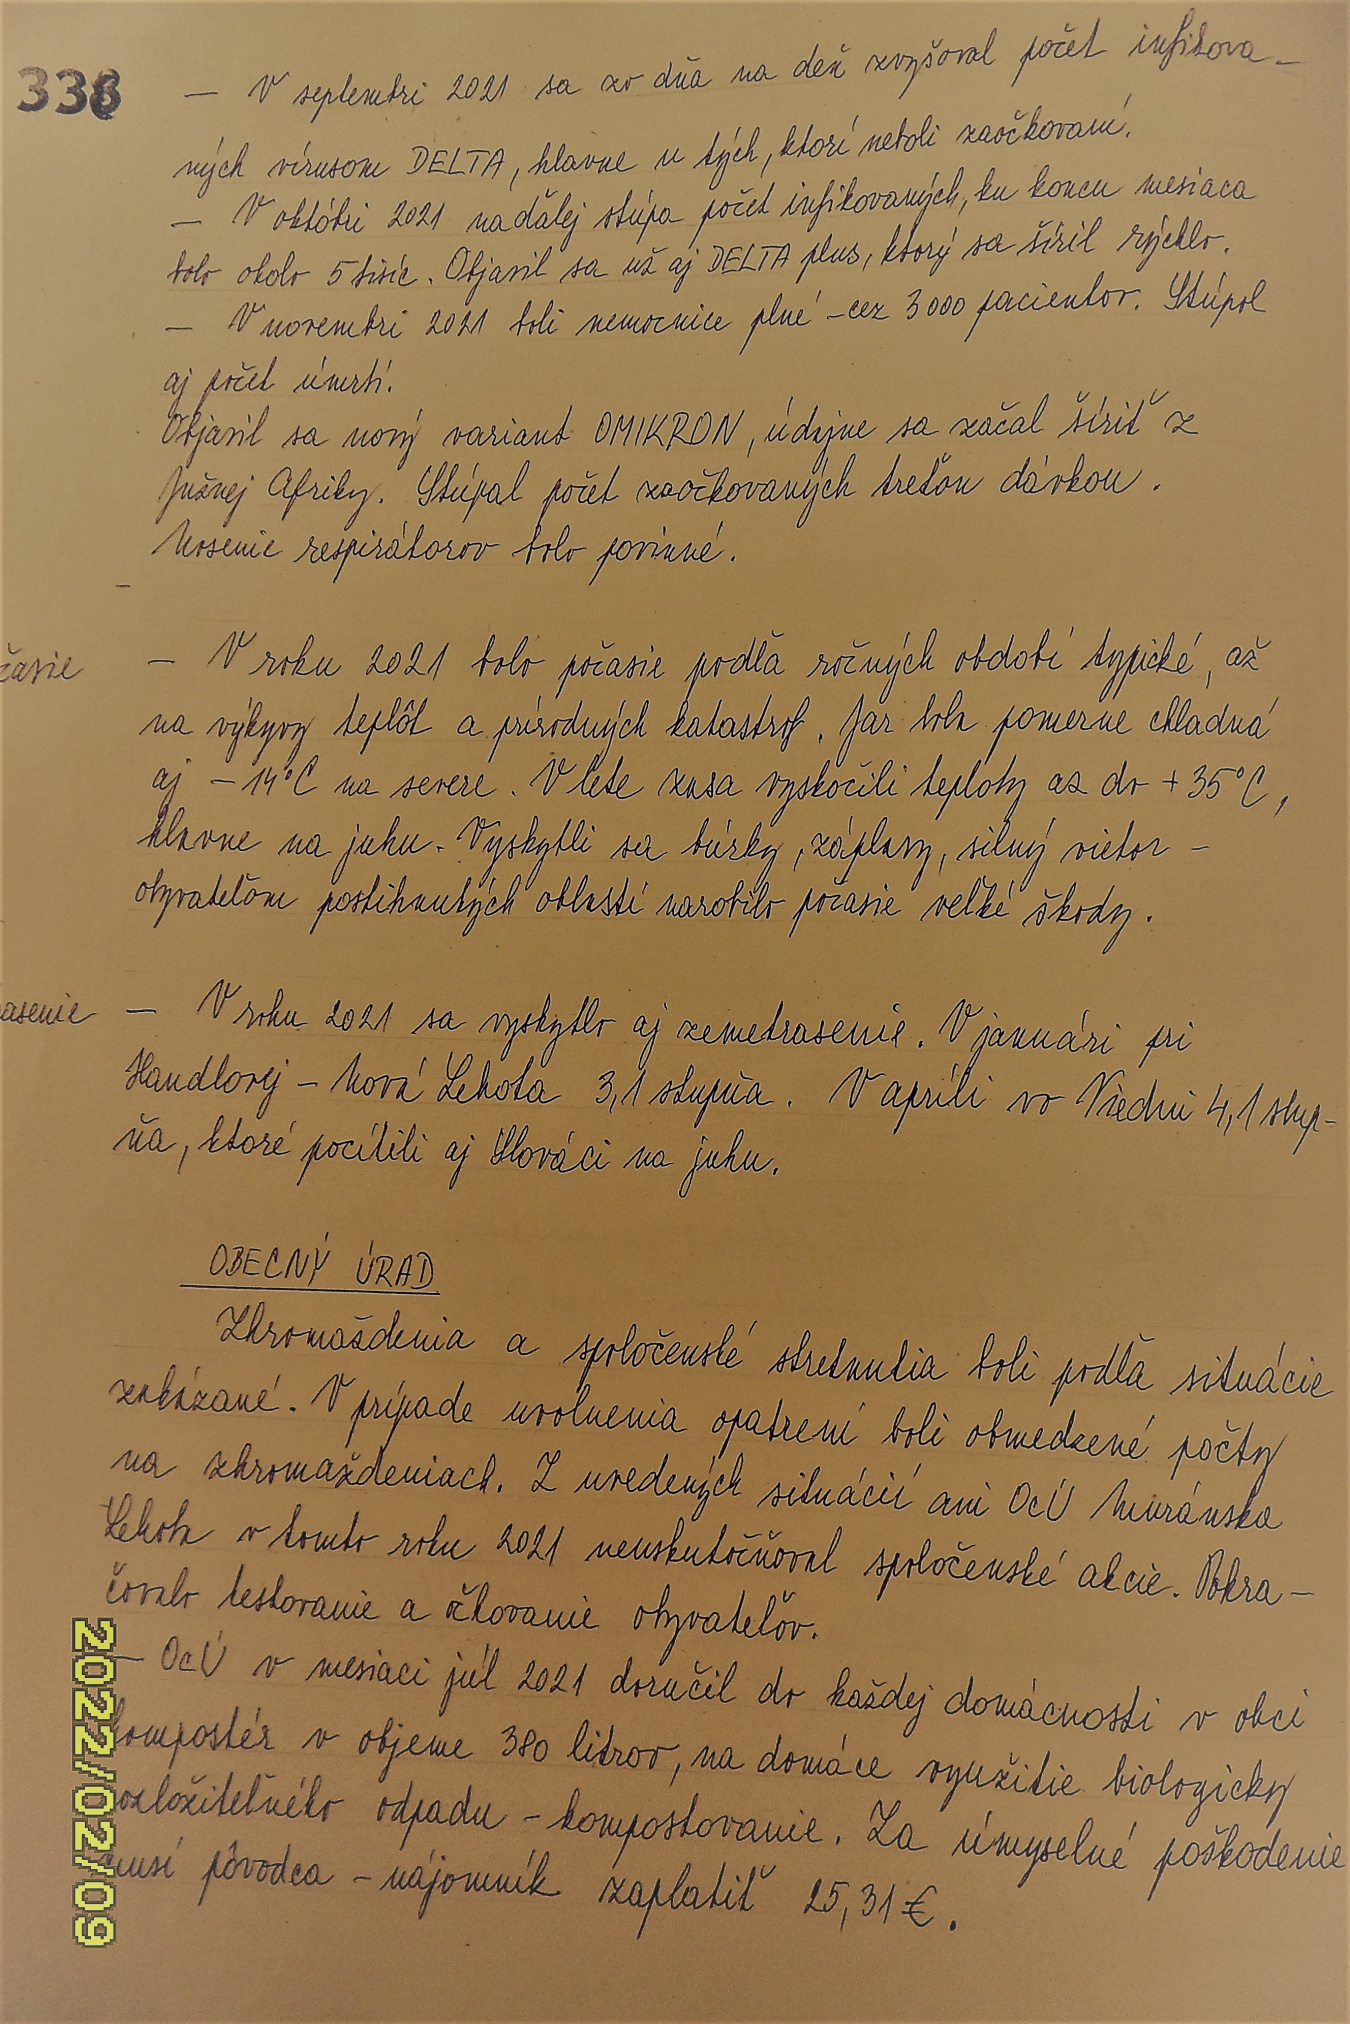 338
— V septembri 2021 sa zo dňa na deň zvyšoval počet infikova-
ných vírusom DELTA, hlavne u tých, ktorí neboli zaočkovaní.
— V októbri 2021 naďalej stúpa počet infikovaných, ku koncu mesiaca
bolo okolo 5 tisíc. Objavil sa už aj DELTA plus, ktorý sa šíril rýchlo.
— V novembri 2021 boli nemocnice plné - cez 3 000 pacientov. Stúpol
aj počet úmrtí.
Objavil sa nový variant OMIKRON, údajne sa začal šíriť z
Južnej Afriky. Stúpal počet zaočkovaných treťou dávkou.
Nosenie respirátorov bolo povinné.
časie — V roku 2021 bolo počasie podľa ročných období typické, až
na výkyvy teplôt a prírodných katastrof. Jar bola pomerne chladná
aj -14°C na severe. V lete zasa vyskočili teploty až do +35°C,
hlavne na juhu. Vyskytli sa búrky, záplavy, silný vietor -
obyvateľom postihnutých oblastí narobilo počasie veľké škody.
asenie — V roku 2021 sa vyskytlo aj zemetrasenie. V januári pri
Handlovej - Nová Lehota 3,1 stupňa. V apríli vo Viedni 4,1 stup-
ňa, ktoré pocítili aj Slováci na juhu.
OBECNÝ ÚRAD
Zhromaždenia a spoločenské stretnutia boli podľa situácie
zakázané. V prípade uvoľnenia opatrení boli obmedzené počty
na zhromaždeniach. Z uvedených situácií ani OcÚ Muránska
Lehota v tomto roku 2021 neuskutočňoval spoločenské akcie. Pokra-
čovalo testovanie a očkovanie obyvateľov.
— OcÚ v mesiaci júl 2021 doručil do každej domácnosti v obci
kompostér v objeme 380 litrov, na domáce využitie biologicky
rozložiteľného odpadu - kompostovanie. Za úmyselné poškodenie
musí pôvodca - nájomník zaplatiť 25,31 €.
2022/02/09